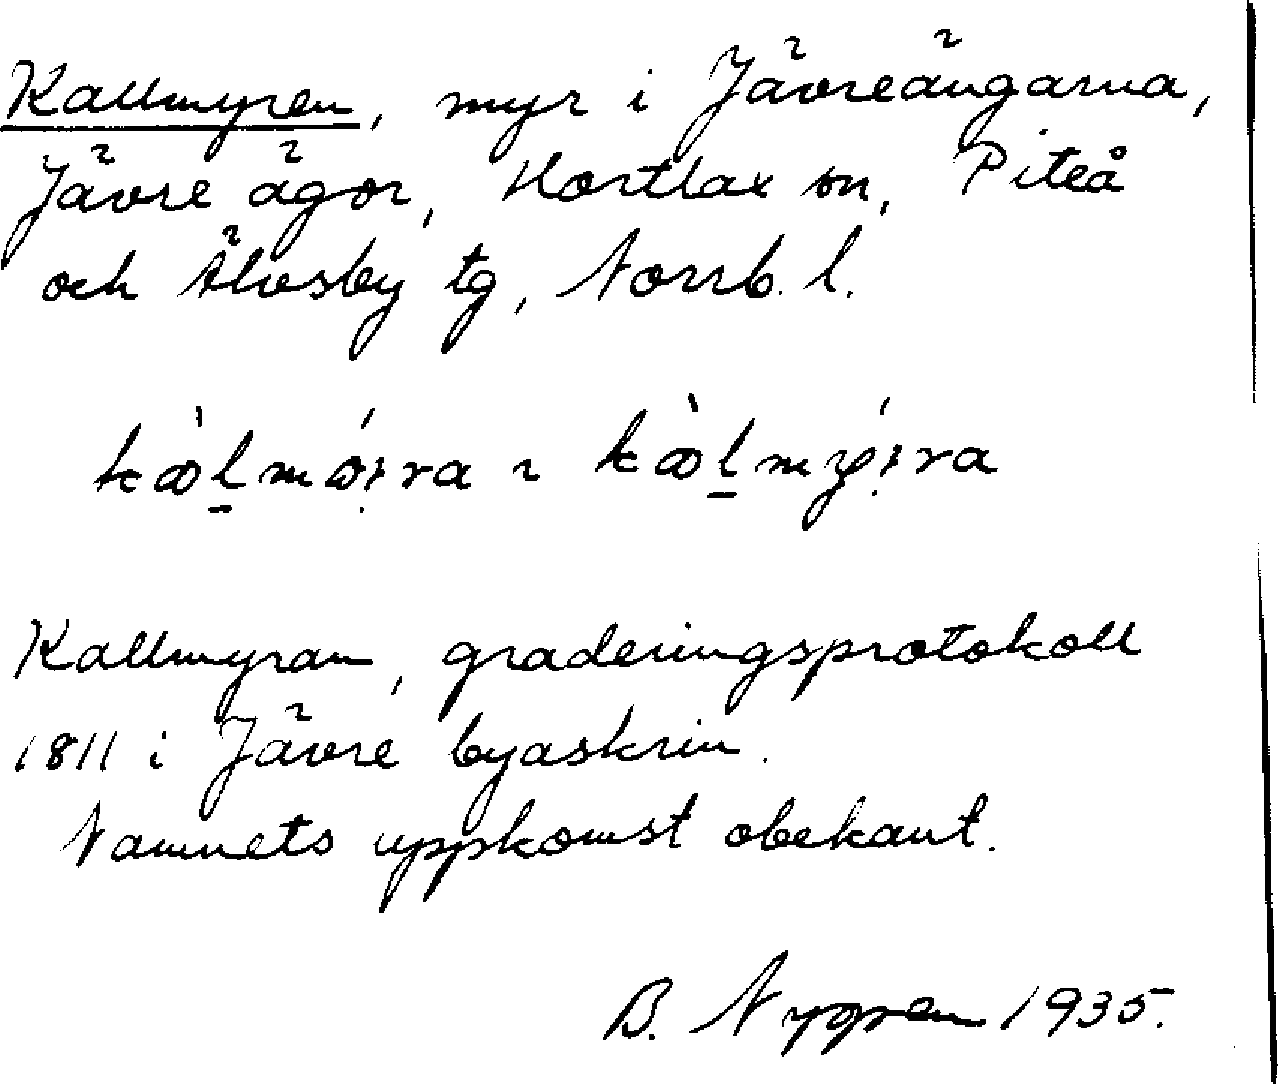 Kallmyren, myr i Jävreängarna,
Jävre ägor, Hortlax sn, Piteå
och Älvsby tg, Norrb. l.
Kallmyran, graderingsprotokoll
1811 i Jävre byaskrin.
Namnets uppkomst obekant.
B. Nygren 1935.